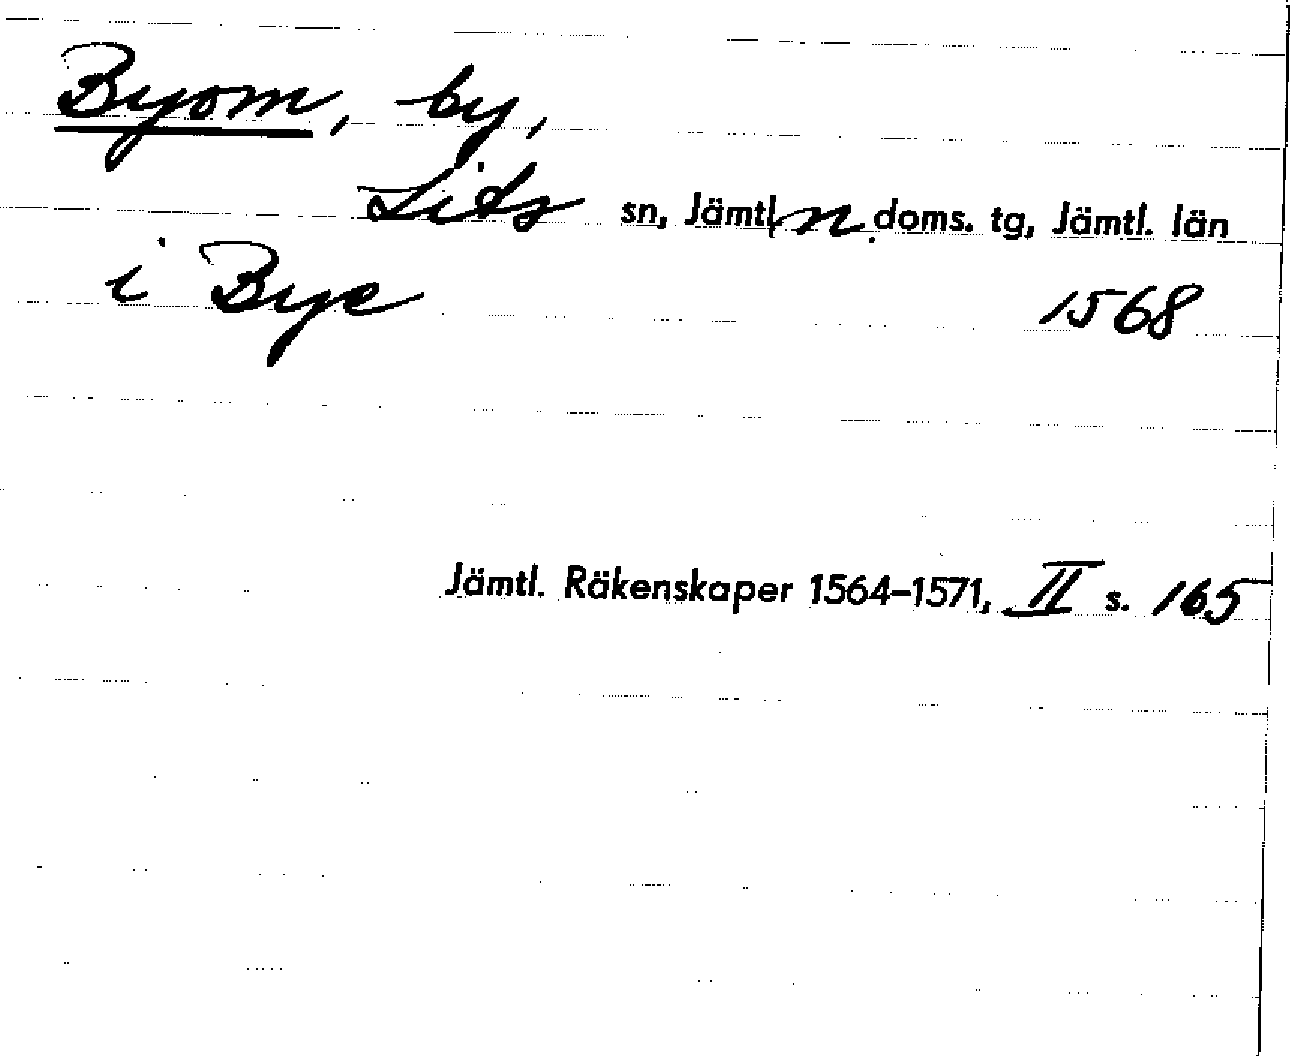 Byom, by,
Lits sn, Jämtl. n. doms. tg, Jämtl. län
i Bye 1568
Jämtl. Räkenskaper 1564–1571, II s. 165